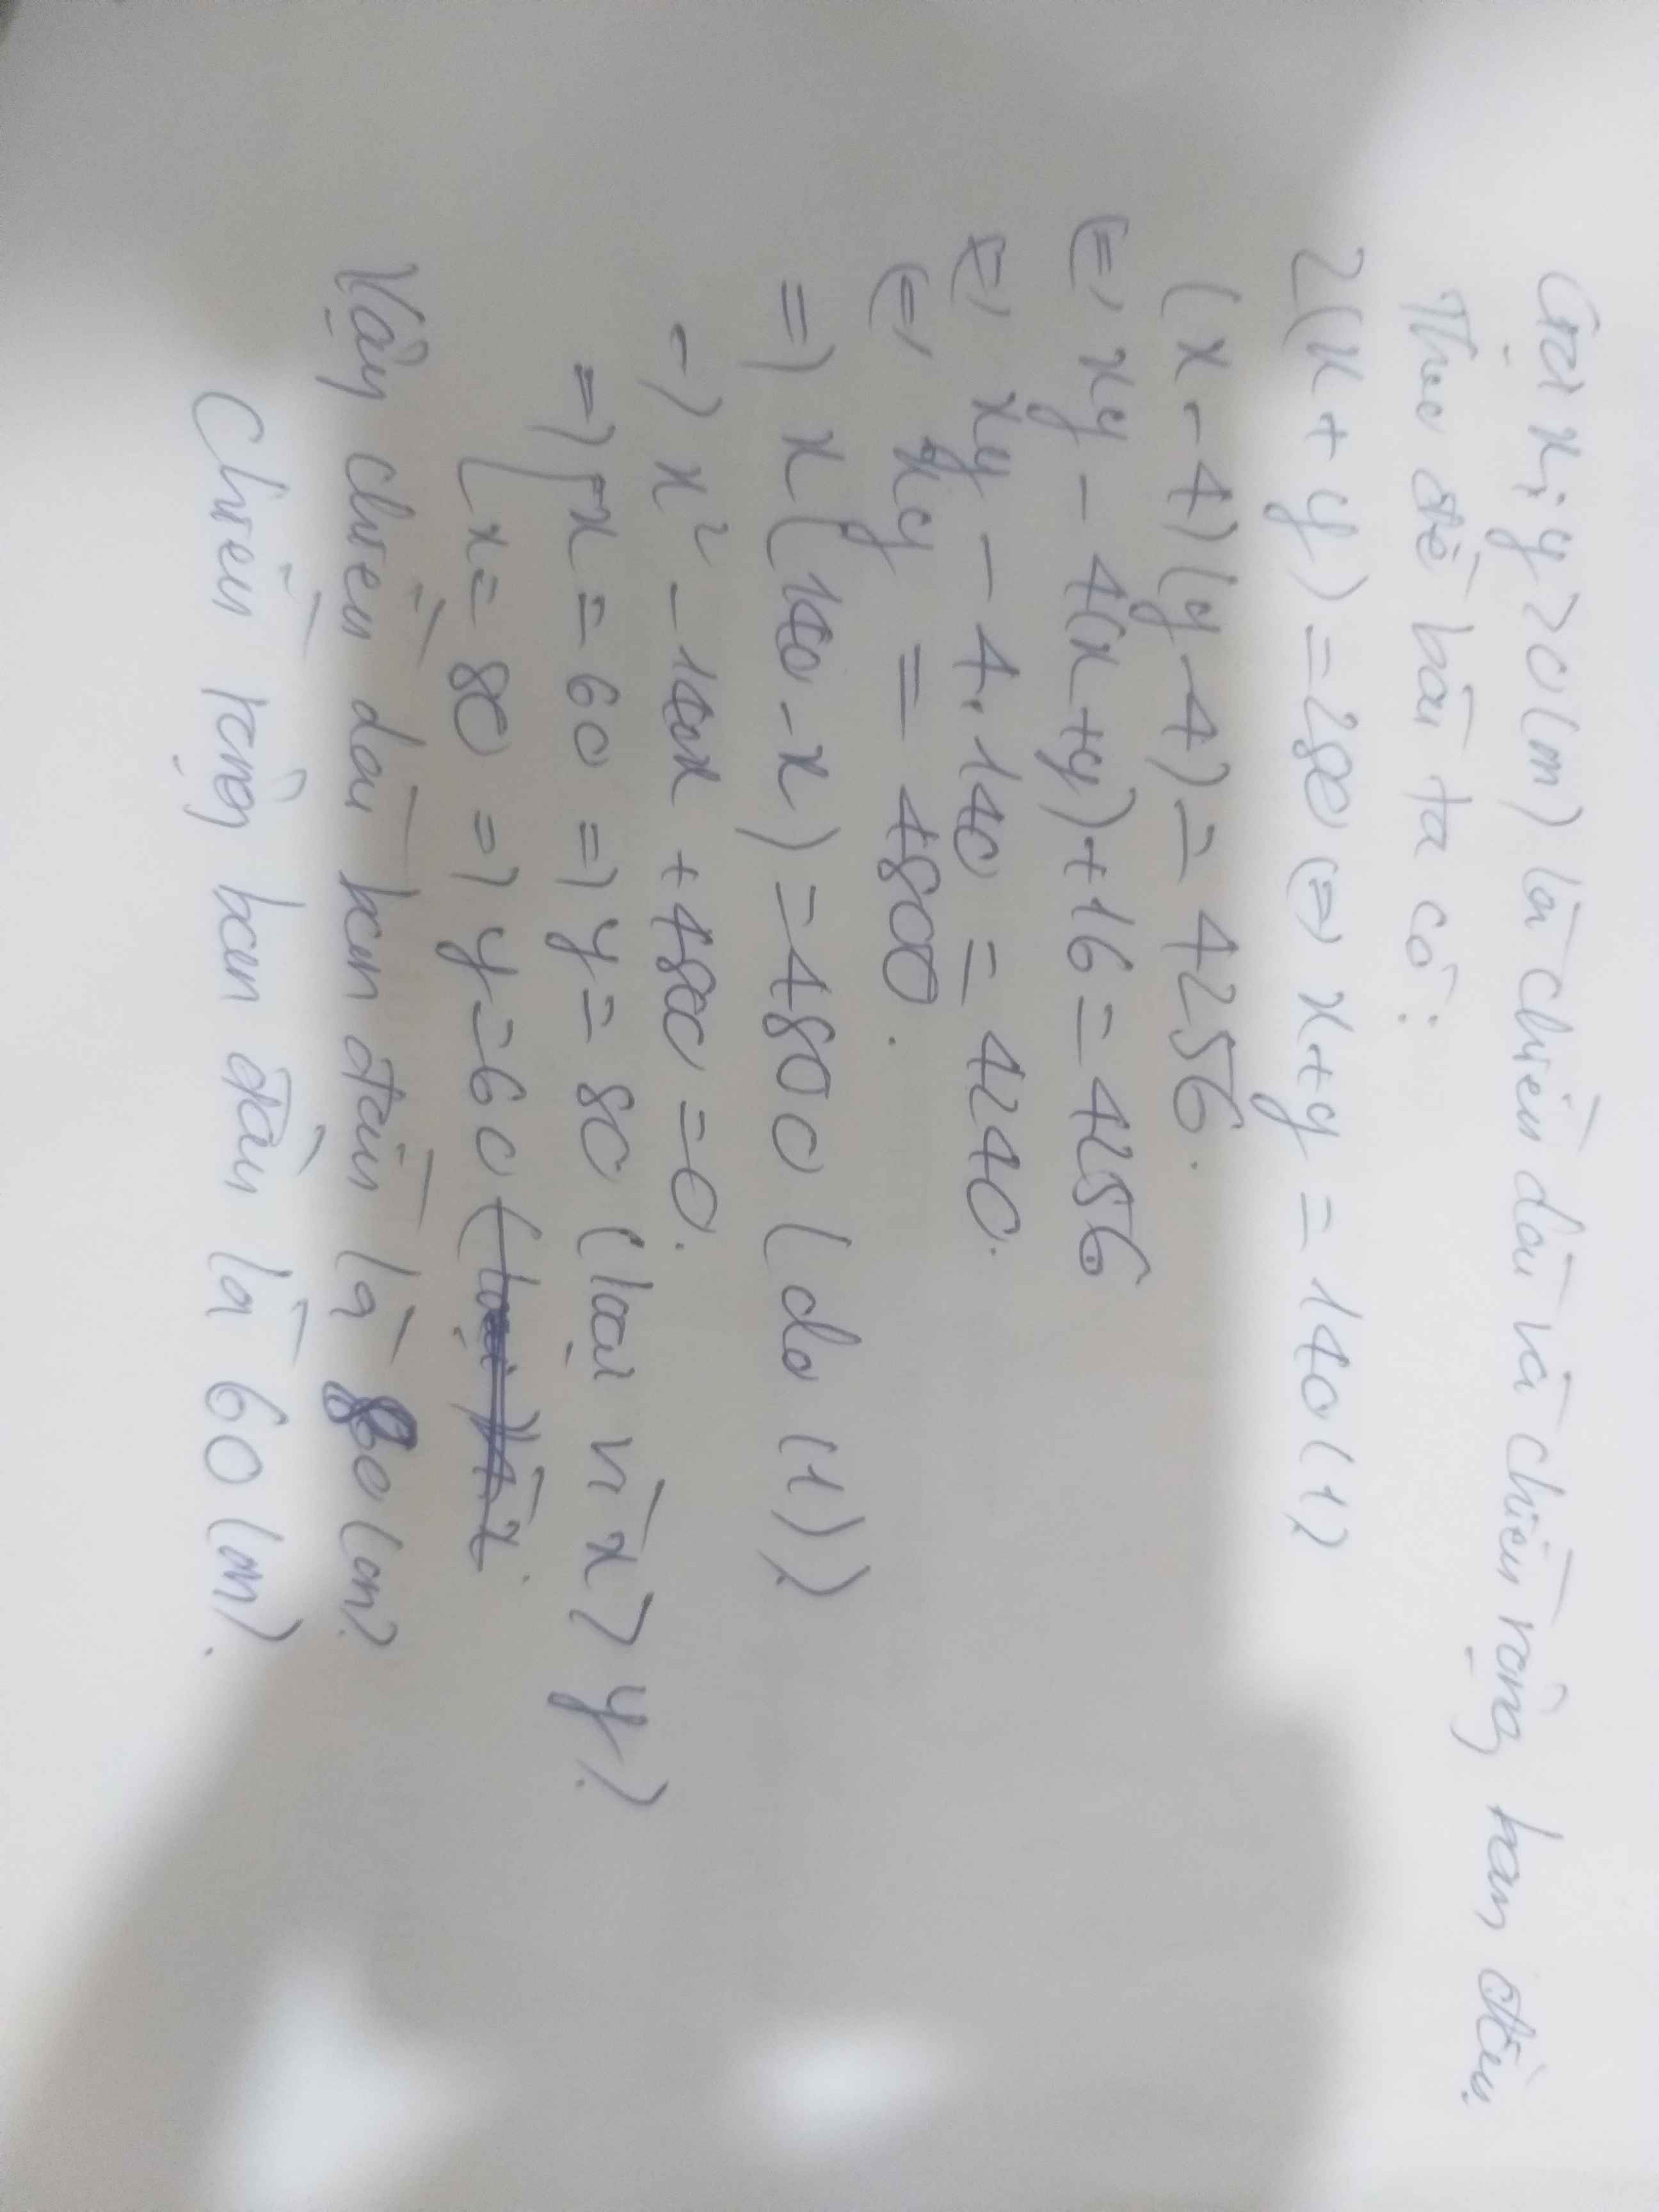 Gọi x; y > 0 (m) là chiều dài và chiều rộng ban đầu
Theo đề bài ta có:
2(x + y) = 280 (=) x + y = 140 (1)
(x - 4)(y - 4) = 4256.
(=) xy - 4(x + y) + 16 = 4256
(=) xy - 4.140 = 4240.
(=) xy = 4800.
=) x(140 - x) = 4800 (do (1))
=) x² - 140x + 4800 = 0.
=) [x = 60 =) y = 80 (loại vì x > y)
[x = 80 =) y = 60
Vậy chiều dài ban đầu là 80 (m)
Chiều rộng ban đầu là 60 (m).